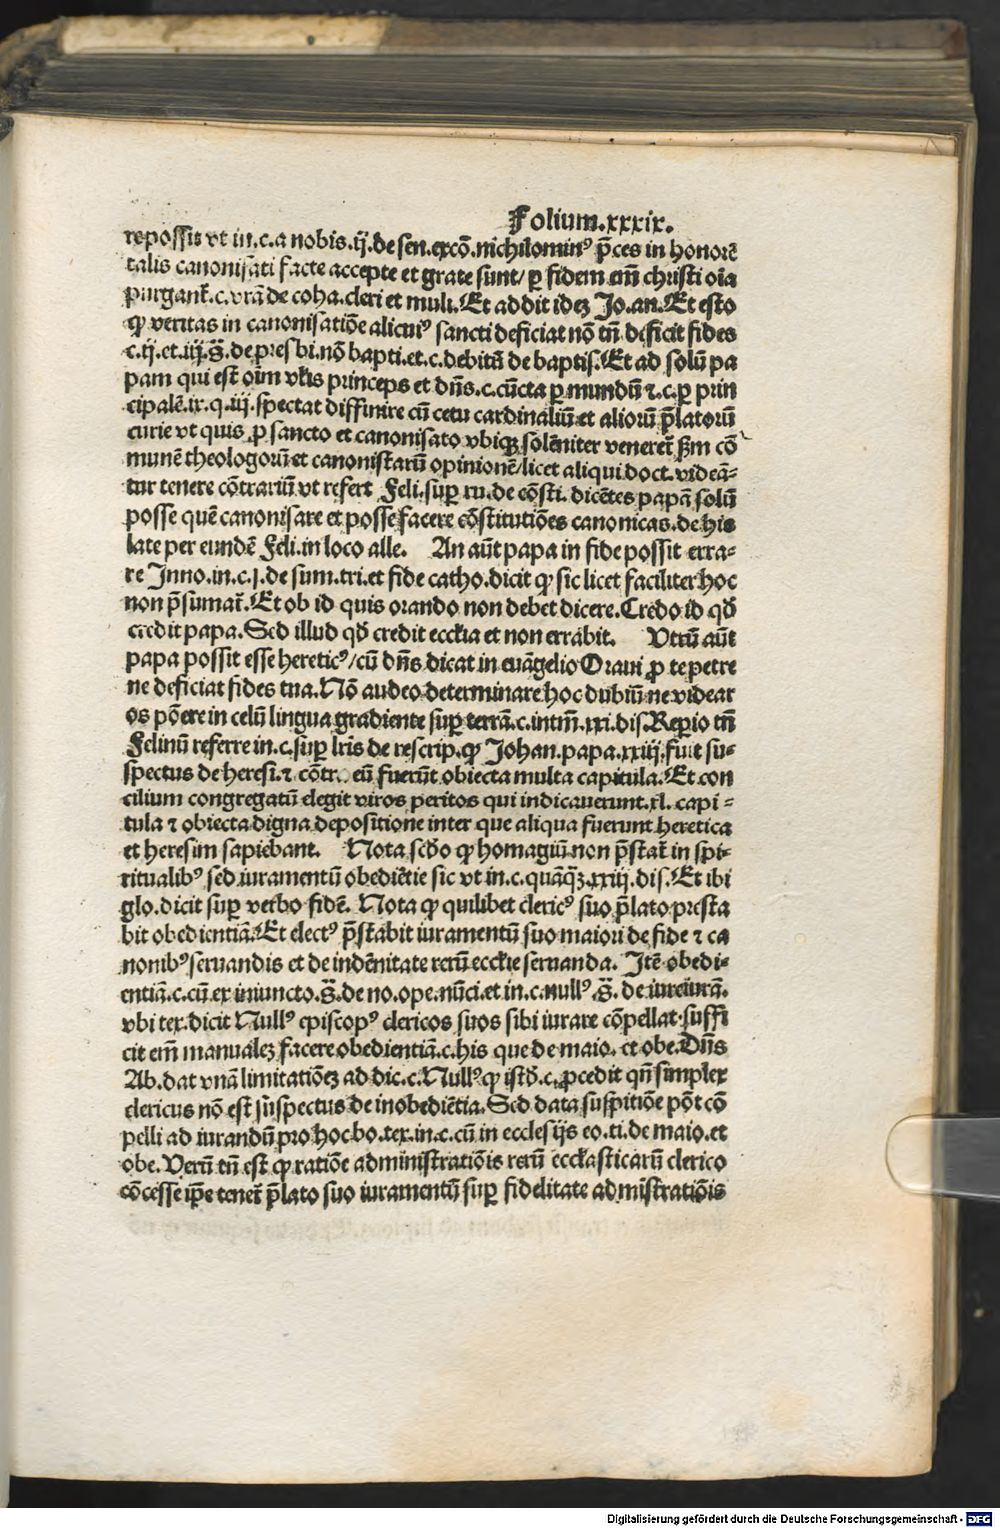 Folium.xxxix.
re possit vt in.c.a nobis.ij.de sen.excō.nichilominꝰ p̄ces in honorē
talis canonisati facte accepte et grate sunt/ ꝑ fidem em̄ christi oīa
purgant᷑.c.vrā de coha.cleri et muli.Et addit ideꝫ Jo.an.Et esto
ꝙ veritas in canonisatiōe alicuiꝰ sancti deficiat nō tn̄ deficit fides
c.ij.et.iij.S̄.de presbi.nō bapti.et.c.debitū de baptis.Et ad solū pa
pam qui est oīm vƚis princeps et dn̄s.c.cūcta ꝑ mundū ⁊.c.ꝑ prin
cipalē.ix.q.iij.spectat diffinire cū cetu cardinaliū et alioꝛū p̄latoꝛū
curie vt quis ꝓ sancto et canonisato vbiqꝫ solēniter veneret᷑ ẜm cō
munē theologoꝛū et canonistarū opinionē/licet aliqui doct.videā-
tur tenere cōtrariū vt refert Feli.suꝑ ru.de cōsti.dicētes papā solū
posse quē canonisare et posse facere cōstitutiōes canonicas.de his
late per eundē Feli.in loco alle. An aūt papa in fide possit erra-
re Inno.in.c.j.de sum.tri.et fide catho.dicit ꝙ sic licet faciliter hoc
non p̄sumat᷑.Et ob id quis orando non debet dicere.Credo id qđ
credit papa.Sed illud qđ credit eccƚia et non errabit. Vtrū aūt
papa possit esse hereticꝰ/cū dn̄s dicat in euāgelio Oraui ꝓ te petre
ne deficiat fides tua.Nō audeo determinare hoc dubiū ne videar
os pōere in celū lingua gradiente suꝑ terrā.c.intm̄.xxi.dis.Reꝑio tn̄
Felinū referre in.c.suꝑ lr̄is de rescrip.ꝙ Johan.papa.xxiij.fuit su-
spectus de heresi.⁊ cōtr. eū fuerūt obiecta multa capitula.Et con
cilium congregatū elegit viros peritos qui indicauerunt.xl.capi-
tula ⁊ obiecta digna depositione inter que aliqua fuerunt heretica
et heresim sapiebant. Nota scđo ꝙ homagiū non p̄stat᷑ in spi-
ritualibꝰ sed iuramentū obediētie sic vt in.c.quāqꝫ.xxiij.dis.Et ibi
glo.dicit suꝑ verbo fidē. Nota ꝙ quilibet clericꝰ suo p̄lato presta
bit obedientiā.Et electꝰ p̄stabit iuramentū suo maiori de fide ⁊ ca
nonibꝰ seruandis et de indēnitate rerū eccƚie seruanda. Itē obedi-
entiā.c.cū ex iniuncto.S̄.de no.ope.nūci.et in.c.nullꝰ.S̄.de iureiurā.
vbi tex.dicit Nullꝰ episcopꝰ clericos suos sibi iurare cōpellat.suffi
cit em̄ manualeꝫ facere obedientiā.c.his que de maio. et obe.Dn̄s
Ab.dat vnā limitatiōeꝫ ad dic.c.Nullꝰ ꝙ istđ.c.ꝓcedit qn̄ simplex
clericus nō est suspectus de inobediētia.Sed data suspitiōe pōt cō
pelli ad iurandū pro hoc bo.tex.in.c.cū in ecclesijs eo.ti.de maio.et
obe.Verū tn̄ est ꝙ ratiōe administratiōis rerū eccƚasticarū clerico
cōcesse ip̄e tenet᷑ p̄lato suo iuramentū suꝑ fidelitate admīstratiōis
Digitalisierung gefördert durch die Deutsche Forschungsgemeinschaft - DFG